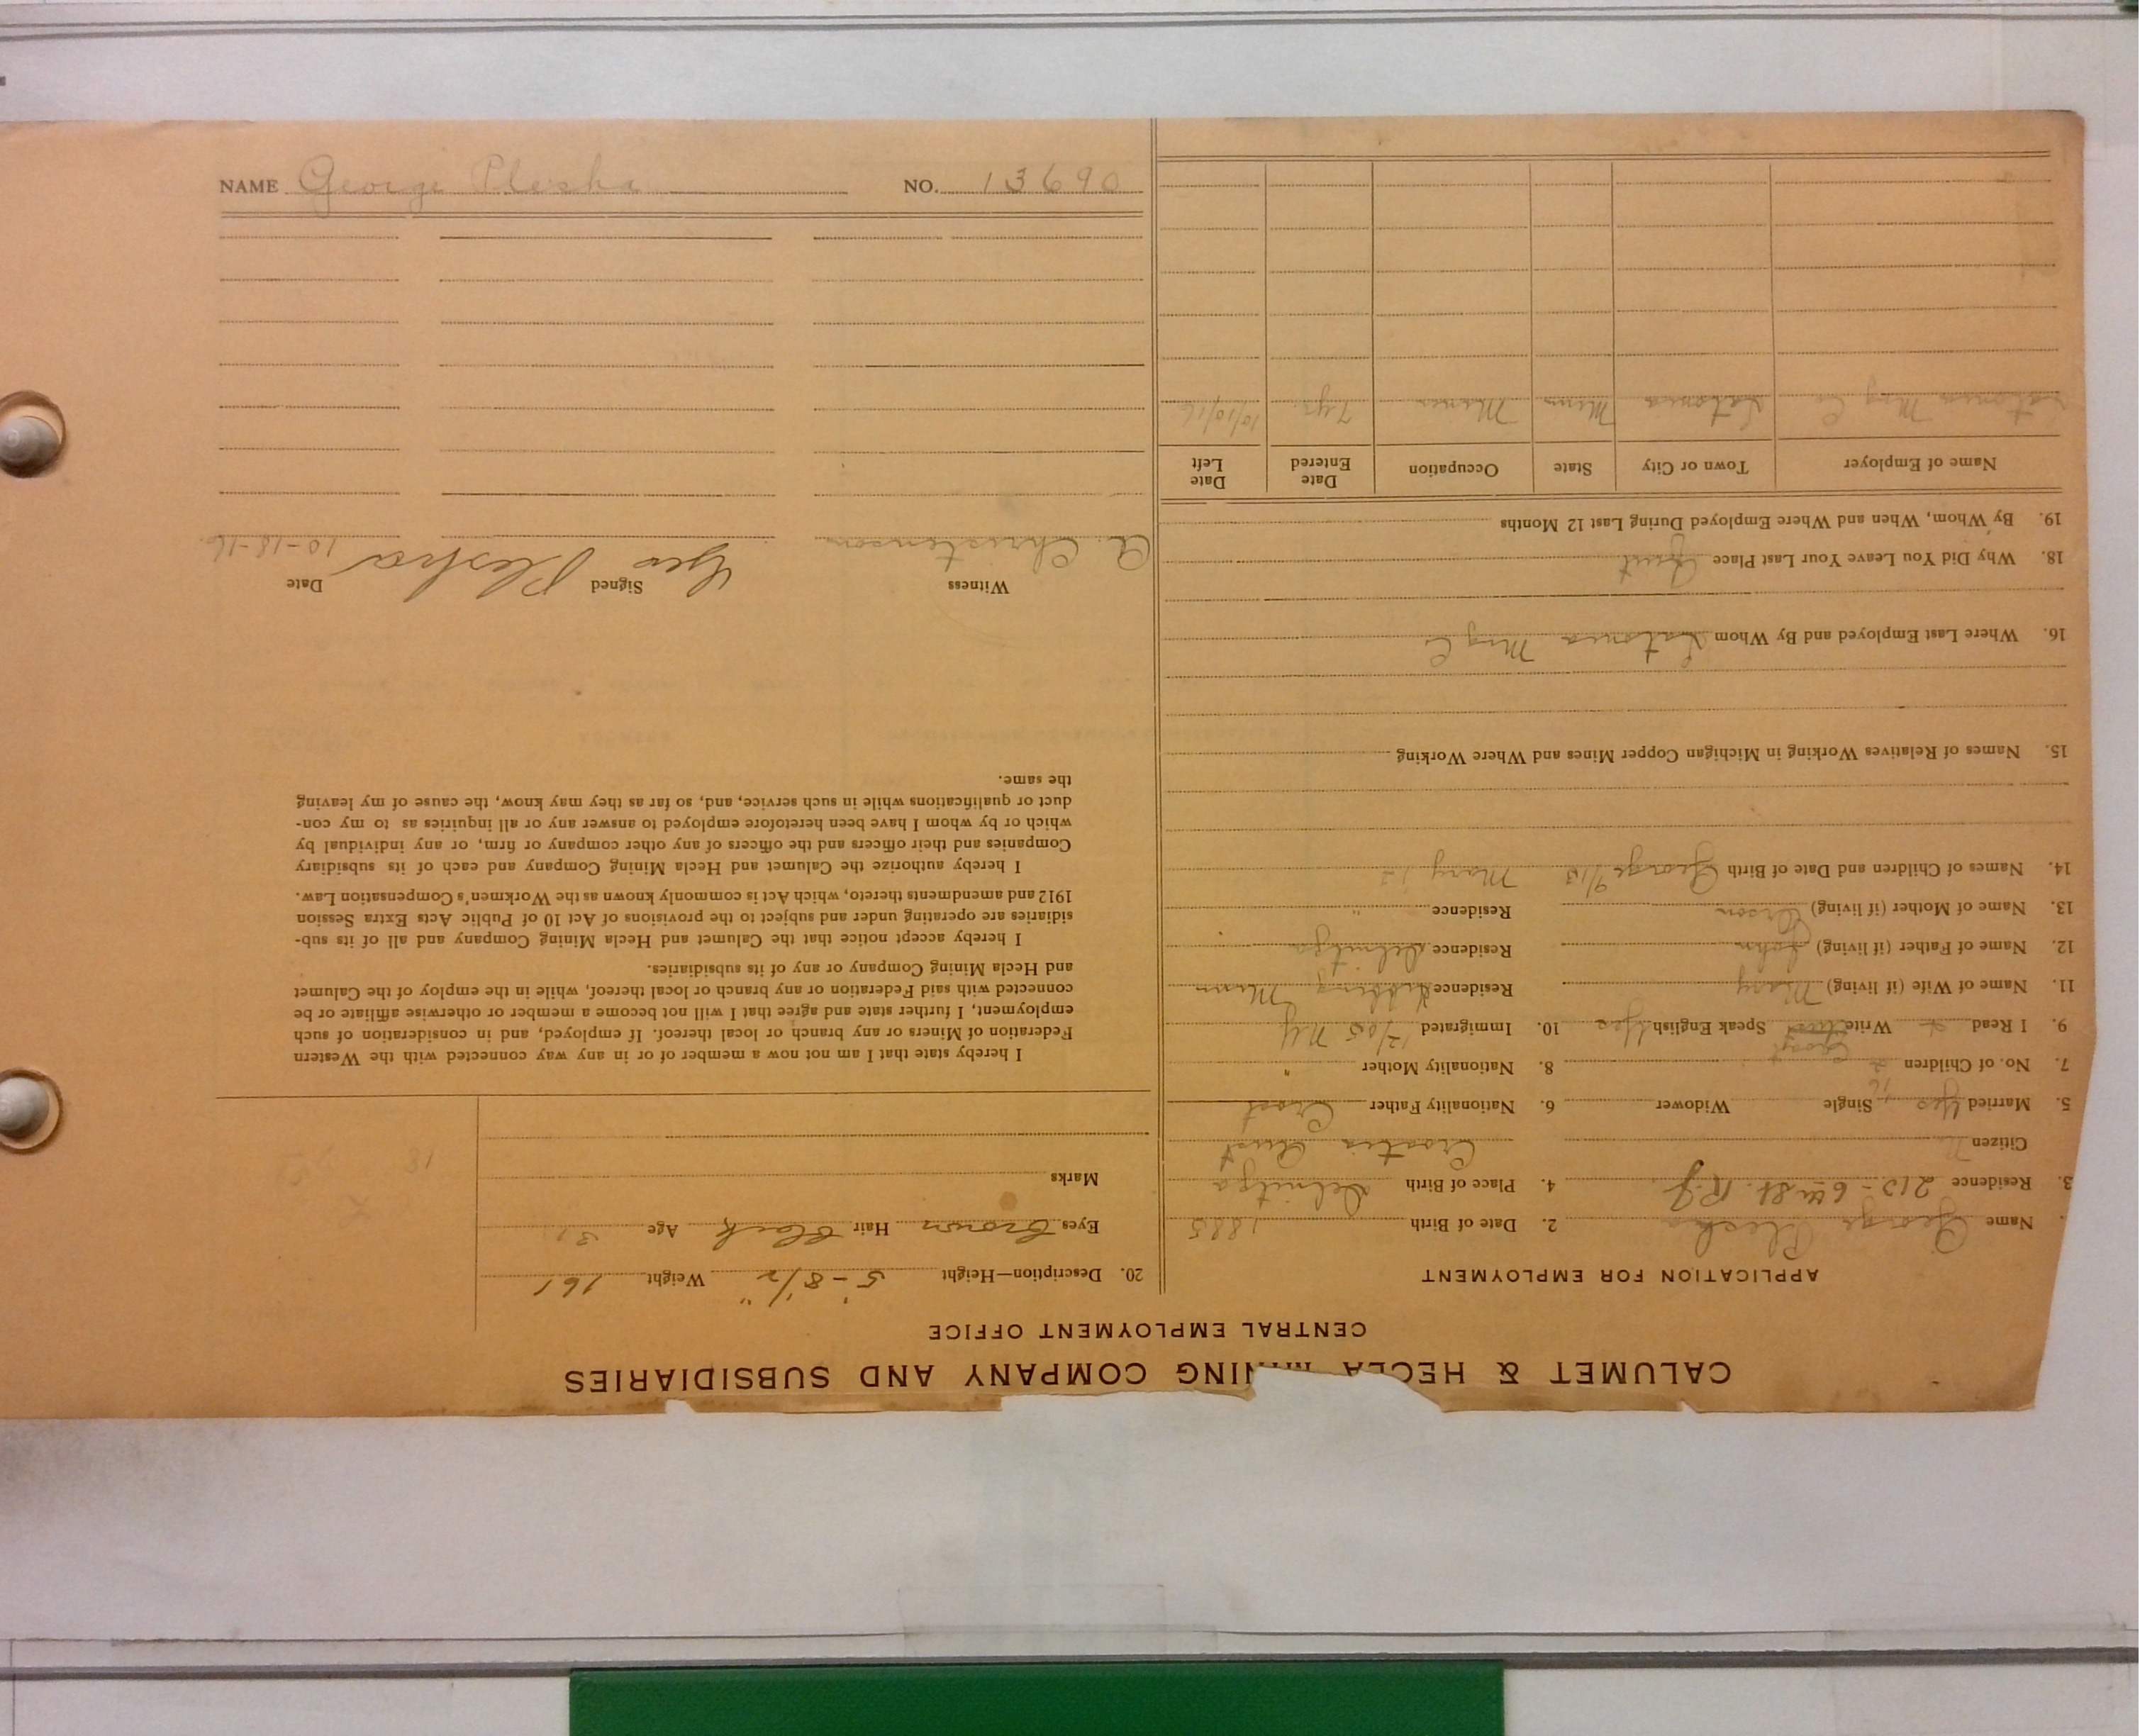 CALUMET & HECLA MINING COMPANY AND SUBSIDIARIES
CENTRAL EMPLOYMENT OFFICE
APPLICATION FOR EMPLOYMENT
Name George Plesha 2. Date of Birth 1885
3. Residence 215 - 6th St. R.J. 4. Place of Birth Delnitza
Citizen Croatia Aust
5. Married Yes Single Widower 6. Nationality Father Croat
7. No. of Children 2 8. Nationality Mother "
9. I Read Write Speak English Yes 10. Immigrated 12/05 NY
11. Name of Wife (if living) Mary Residence Hibbing Minn
12. Name of Father (if living) John Residence Delnitza
13. Name of Mother (if living) Residence "
14. Names of Children and Date of Birth George 9/13 Mary
15. Names of Relatives Working in Michigan Copper Mines and Where Working
16. Where Last Employed and By Whom Latonia Mng Co
18. Why Did You Leave Your Last Place Quit
19. By Whom, When and Where Employed During Last 12 Months
Name of Employer Town or City State Occupation Date Entered Date Left
Latonia Mng Co Latonia Minn Miner 7 yrs. 10/10/16
20. Description—Height 5'-8 1/2" Weight 161
Eyes Brown Hair Black Age 31
Marks
I hereby state that I am not now a member of or in any way connected with the Western
Federation of Miners or any branch or local thereof. If employed, and in consideration of such
employment, I further state and agree that I will not become a member or otherwise affiliate or be
connected with said Federation or any branch or local thereof, while in the employ of the Calumet
and Hecla Mining Company or any of its subsidiaries.
I hereby accept notice that the Calumet and Hecla Mining Company and all of its sub-
sidiaries are operating under and subject to the provisions of Act 10 of Public Acts Extra Session
1912 and amendments thereto, which Act is commonly known as the Workmen's Compensation Law.
I hereby authorize the Calumet and Hecla Mining Company and each of its subsidiary
Companies and their officers and the officers of any other company or firm, or any individual by
which or by whom I have been heretofore employed to answer any or all inquiries as to my con-
duct or qualifications while in such service, and, so far as they may know, the cause of my leaving
the same.
Witness Signed Date
A. Christenson Geo Plesha 10-18-16
NAME George Plesha NO. 13690